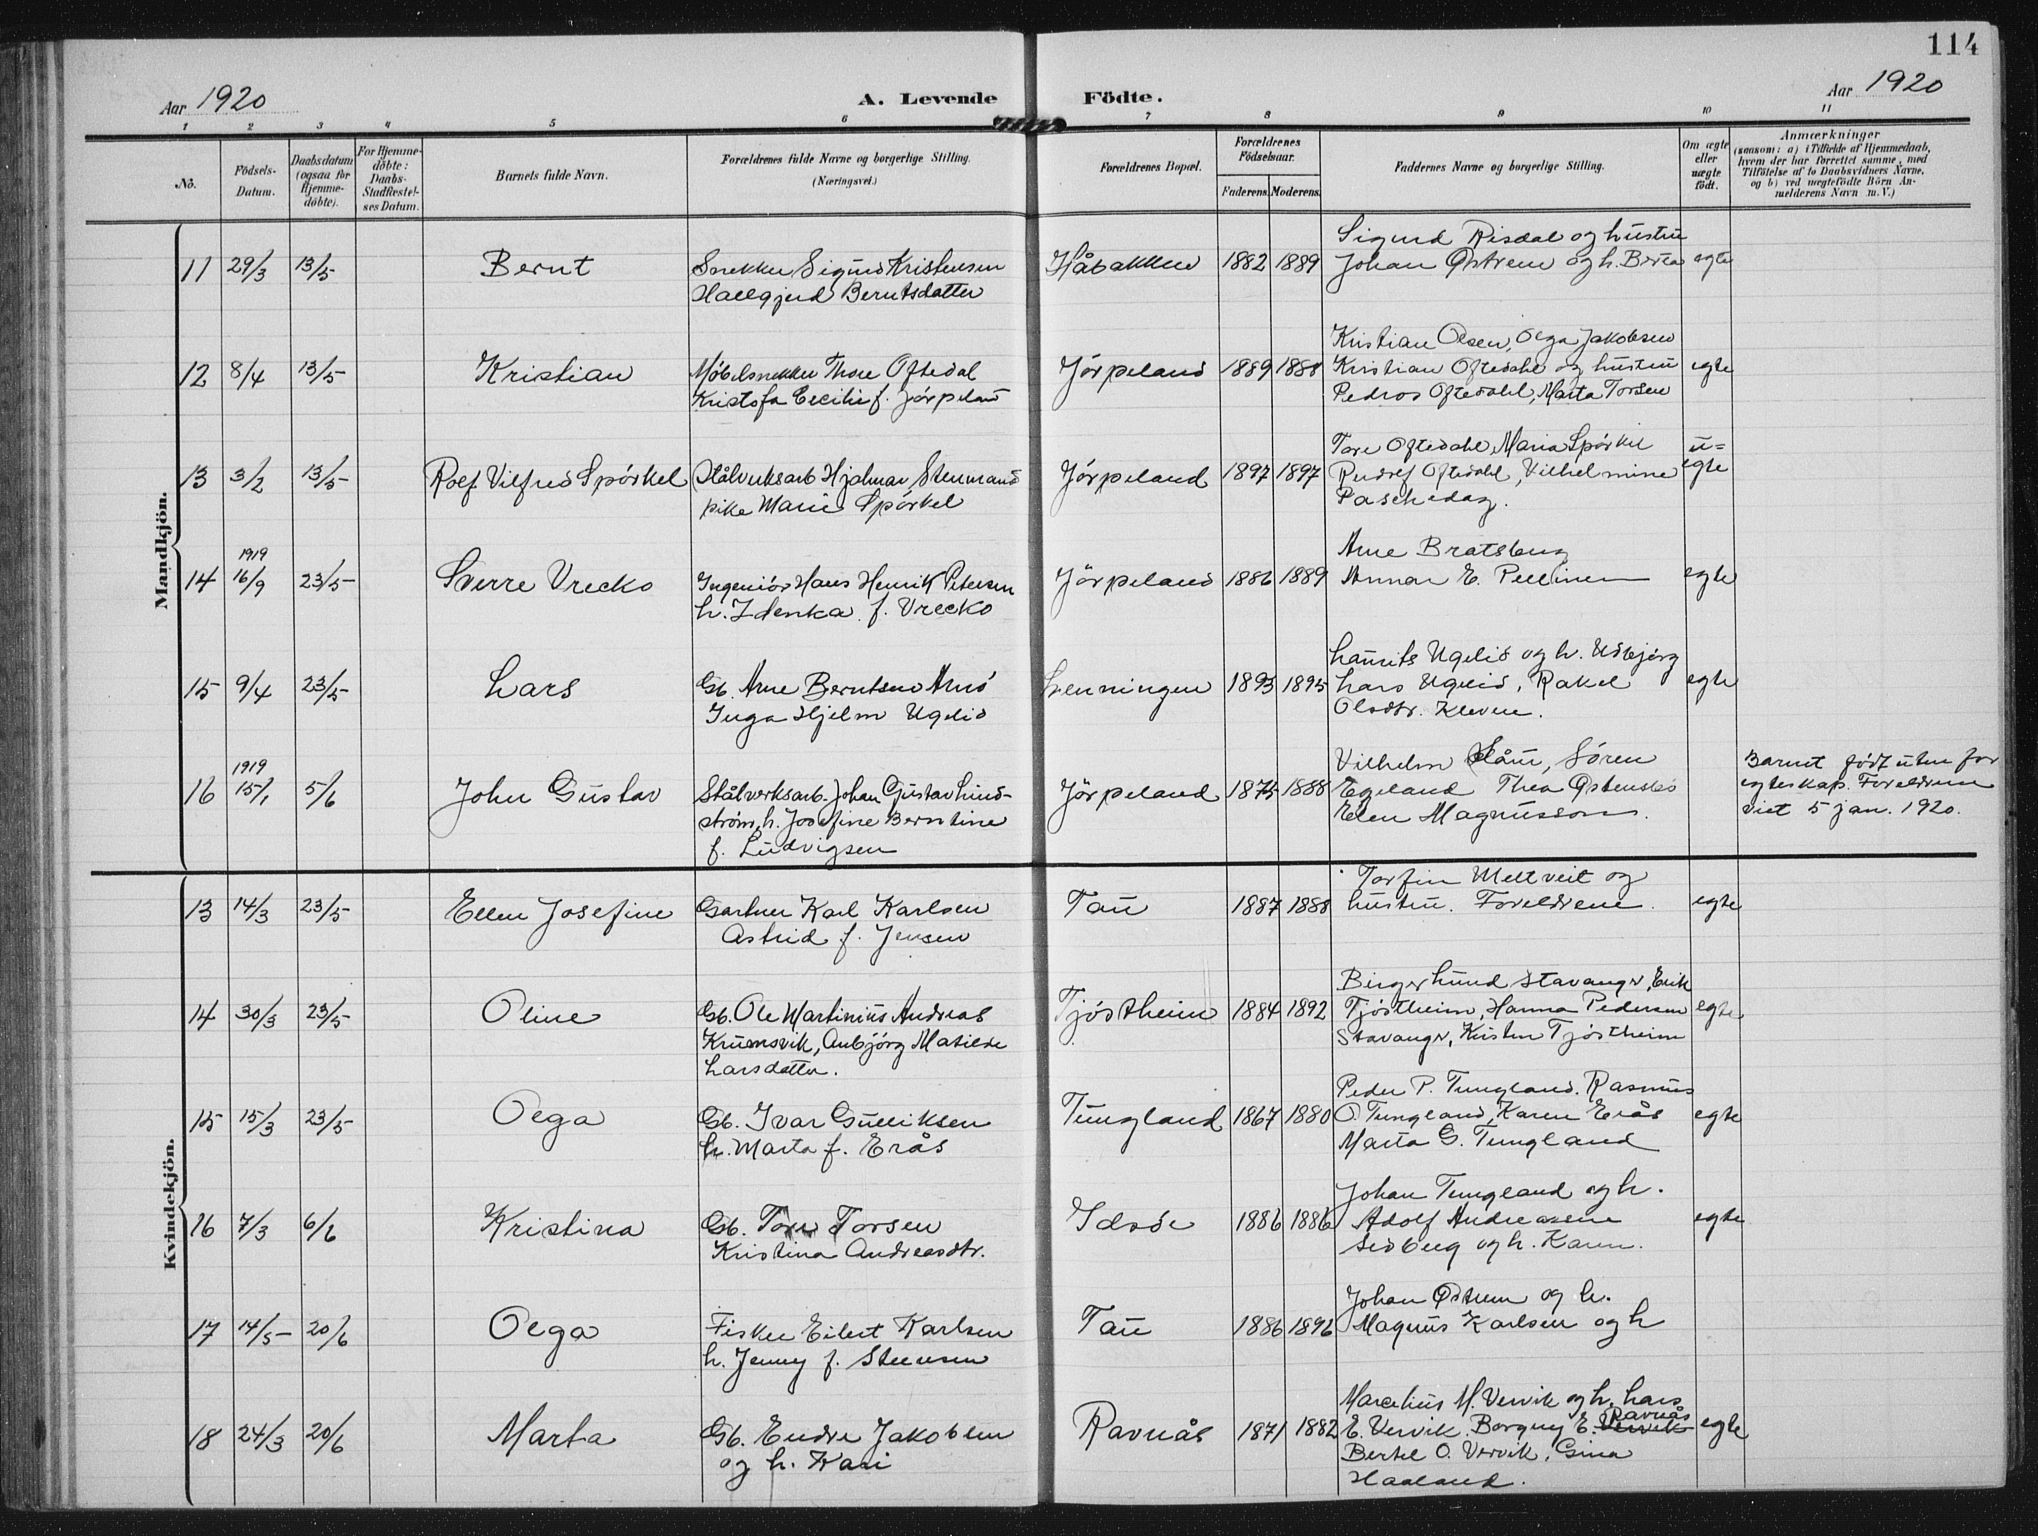 114
Aar 1920
A. Levende Födte.
Aar 1920
1 2 3 4 5 6 7 8 9 10 11
No.
Födsels-Datum.
Daabsdatum (ogsaa for Hjemme-döbte).
For Hjemme-döbte: Daabs-Stadfæstel-ses Datum.
Barnets fulde Navn.
Forældrenes fulde Navne og borgerlige Stilling.
(Næringsvei.)
Forældrenes Bopæl.
Forældrenes Födselsaar.
Faderens. Moderens.
Faddernes Navne og borgerlige Stilling.
Om ægte eller uægte födt.
Anmærkninger
(saasom: a) i Tilfælde af Hjemmedaab,
hvem der har forrettet samme, med
Tilföielse af to Daabsvidners Navne,
og b) ved uægtefödte Börn An-
melderens Navn m. V.)
Mandkjön.
11 29/3 13/5 Bernt
Snekker Sigurd Kristensen
Hallgjerd Berntsdatter
Håbakken 1882 1889
Sigurd Risdal og hustru
Johan Østrem og h. Berta
egte
12 8/4 13/5 Kristian
Møbelsnekker Thore Oftedal
Kristofa Cecilie f. Jørpeland
Jørpeland 1889 1888
Kristian Olsen, Olga Jakobsen
Kristian Oftedahl og hustru
Pedros Oftedahl, Marta Torsen
egte
13 3/2 13/5 Rolf Vilfred Spørkel
Stålverksarb Hjalmar Stenmand
pike Marie Spørkel
Jørpeland 1897 1897
Tore Oftedahl, Maria Spørkel
Oftedahl, Vilhelmine
Paschedag.
u=
egte
14 1919 16/9 23/5 Sverre Vrecko
Ingeniør Hans Henrik Petersen
h. Zdenka f. Vrecko
Jørpeland 1886 1889
Arne Bratsberg
Annar E. Pellinen
egte
15 9/4 23/5 Lars
Gb. Arne Berntsen Amø
Inga Hjelm Ugelid
Lenningen 1893 1895
Laurits Ugelid og h. Udbjørg
Lars Ugelid, Rakel
Olsdtr. Kleven.
egte
16 1919 15/1 5/6 John Gustav
Stålverksarb. Johan Gustav Lind-
strøm, h. Josefine Berntine
f. Ludvigsen
Jørpeland 1875 1888
Vilhelm Slåtn, Søren
Egeland Thea Østenskø
Elen Magnusson.
Barnet født uten for
egteskap. Foreldrene
viet 5 jan. 1920.
Kvindekjön.
13 14/3 23/5 Ellen Josefine
Gartner Karl Karlsen
Astrid f. Jensen
Tau 1887 1888
Torfin Meltveit og
hustru. Foreldrene.
egte
14 30/3 23/5 Oline
Gb. Ole Martinius Andreas
Krumsvik, Anbjørg Matilde
Larsdatter.
Tjøstheim 1884 1892
Birger Lund Stavanger, Erik
Tjøstheim, Hanna Pedersen
Stavanger, Kristen Tjøstheim
egte
15 15/3 23/5 Olga
Gb. Ivar Gulliksen
h. Marta f. Erås
Tungland 1867 1880
Peder P. Tungland. Rasmus
O. Tungland, Karen Erås
Marta G. Tungland
egte
16 7/3 6/6 Kristina
Gb. Tore Torsen
Kristina Andreasdtr.
Idsøe 1886 1886
Johan Tungland og h.
Adolf Andreasene
Sedberg og h. Karen.
egte
17 14/5 20/6 Olga
Fisker Eilert Karlsen
h. Jenny f. Steensen
Tau 1886 1896
Johan Østrem og h.
Magnus Karlsen og h
18 24/3 20/6 Marta
Gb. Endre Jakobsen
og h. Kari
Ravnås 1871 1882
Marselius M. Vervik og h. Lars
E. Vervik. Borgny E. Vervik Ravnås
Bertel O. Vervik, Gina
Haaland.
egte